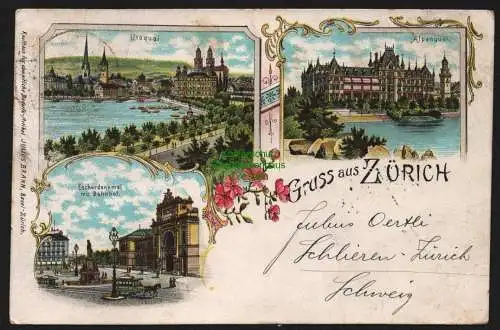 Utoquai
Alpenquai
Escherdenkmal
mit Bahnhof.
Gruss aus ZÜRICH
Julius Oertli
Schlieren-Zürich
Schweiz
JULIUS BRANN, Basel-Zürich.